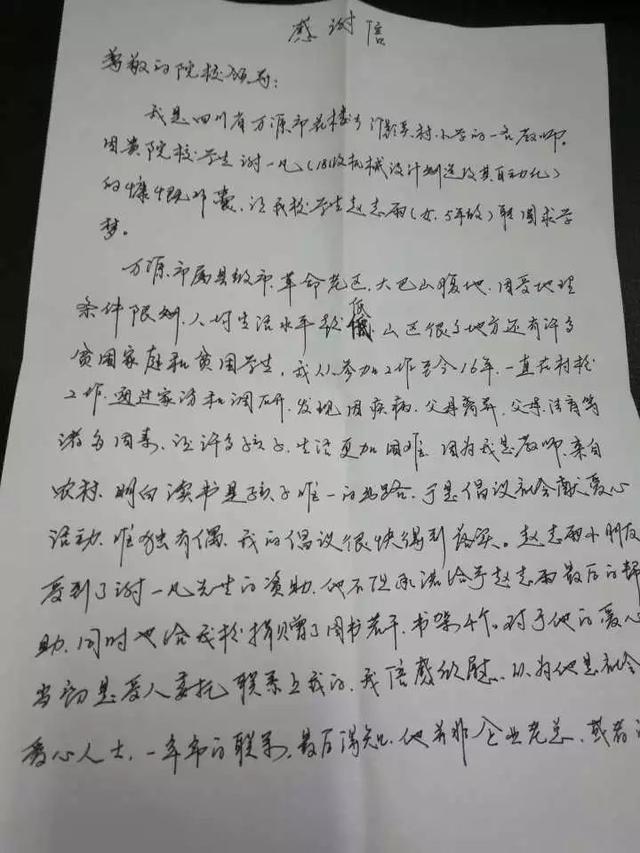 感谢信
尊敬的院校领导：
我是四川省万源市花楼乡 村小学的一名教师。
因贵院校学生谢一凡（18级机械设计制造及其自动化）
的慷慨解囊，让我校学生赵志雨（女，5年级）能圆求学
梦。
万源市属县级市，革命老区，大巴山腹地，因受地理
条件限制，人均生活水平较低，山区很多地方还有许多
贫困家庭和贫困学生，我从参加工作至今16年，一直在村校
工作，通过家访和调研，发现因疾病，父母离异，父母 等
诸多因素，让许多孩子，生活更加困难，因为我是教师，来自
农村，明白读书是孩子唯一的出路，于是倡议社会献爱心
活动，唯独有偶，我的倡议很快得到落实。赵志雨小朋友
受到了谢一凡先生的资助，他不但承诺给予赵志雨最后的帮
助，同时他给我校捐赠了图书若干，书架4个。对于他的爱心
当初是受人委托联系上我的，我倍感欣慰，以为他是社会
爱心人士，一年来的联系，最后得知，他并非企业老总，或者